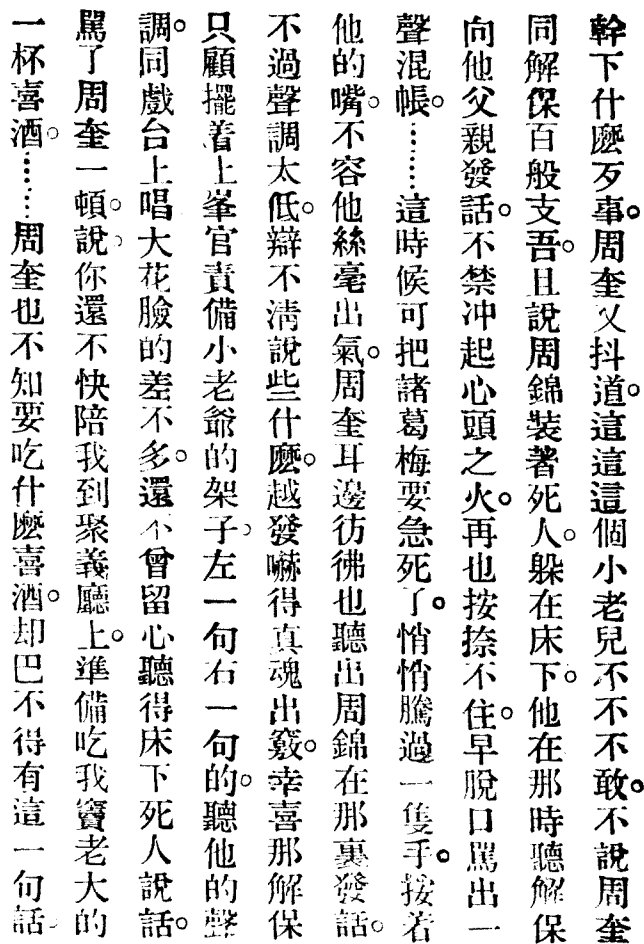 幹下什麼歹事。周奎又抖道。這這這個小老兒不不不敢。不說周奎
同解保百般支吾。且說周錦裝着死人。躲在床下。他在那時聽解保
向他父親發話。不禁冲起心頭之火。再也按捺不住。早脫口罵出一
聲混帳。……這時候可把諸葛梅要急死了。悄悄騰過一隻手。按着
他的嘴。不容他絲毫出氣。周奎耳邊彷彿也聽出周錦在那裏發話。
不過聲調太低。辯不淸說些什麼。越發嚇得真魂出竅。幸喜那解保
只顧擺着上峯官責備小老爺的架子、左一句右一句的。聽他的聲
調。同戲台上唱大花臉的差不多。還不曾留心聽得床下死人說話。
罵了周奎一頓。說、你還不快陪我到聚義廳上。準備吃我竇老大的
一杯喜酒。……周奎也不知要吃什麼喜酒。却巴不得有這一句話。